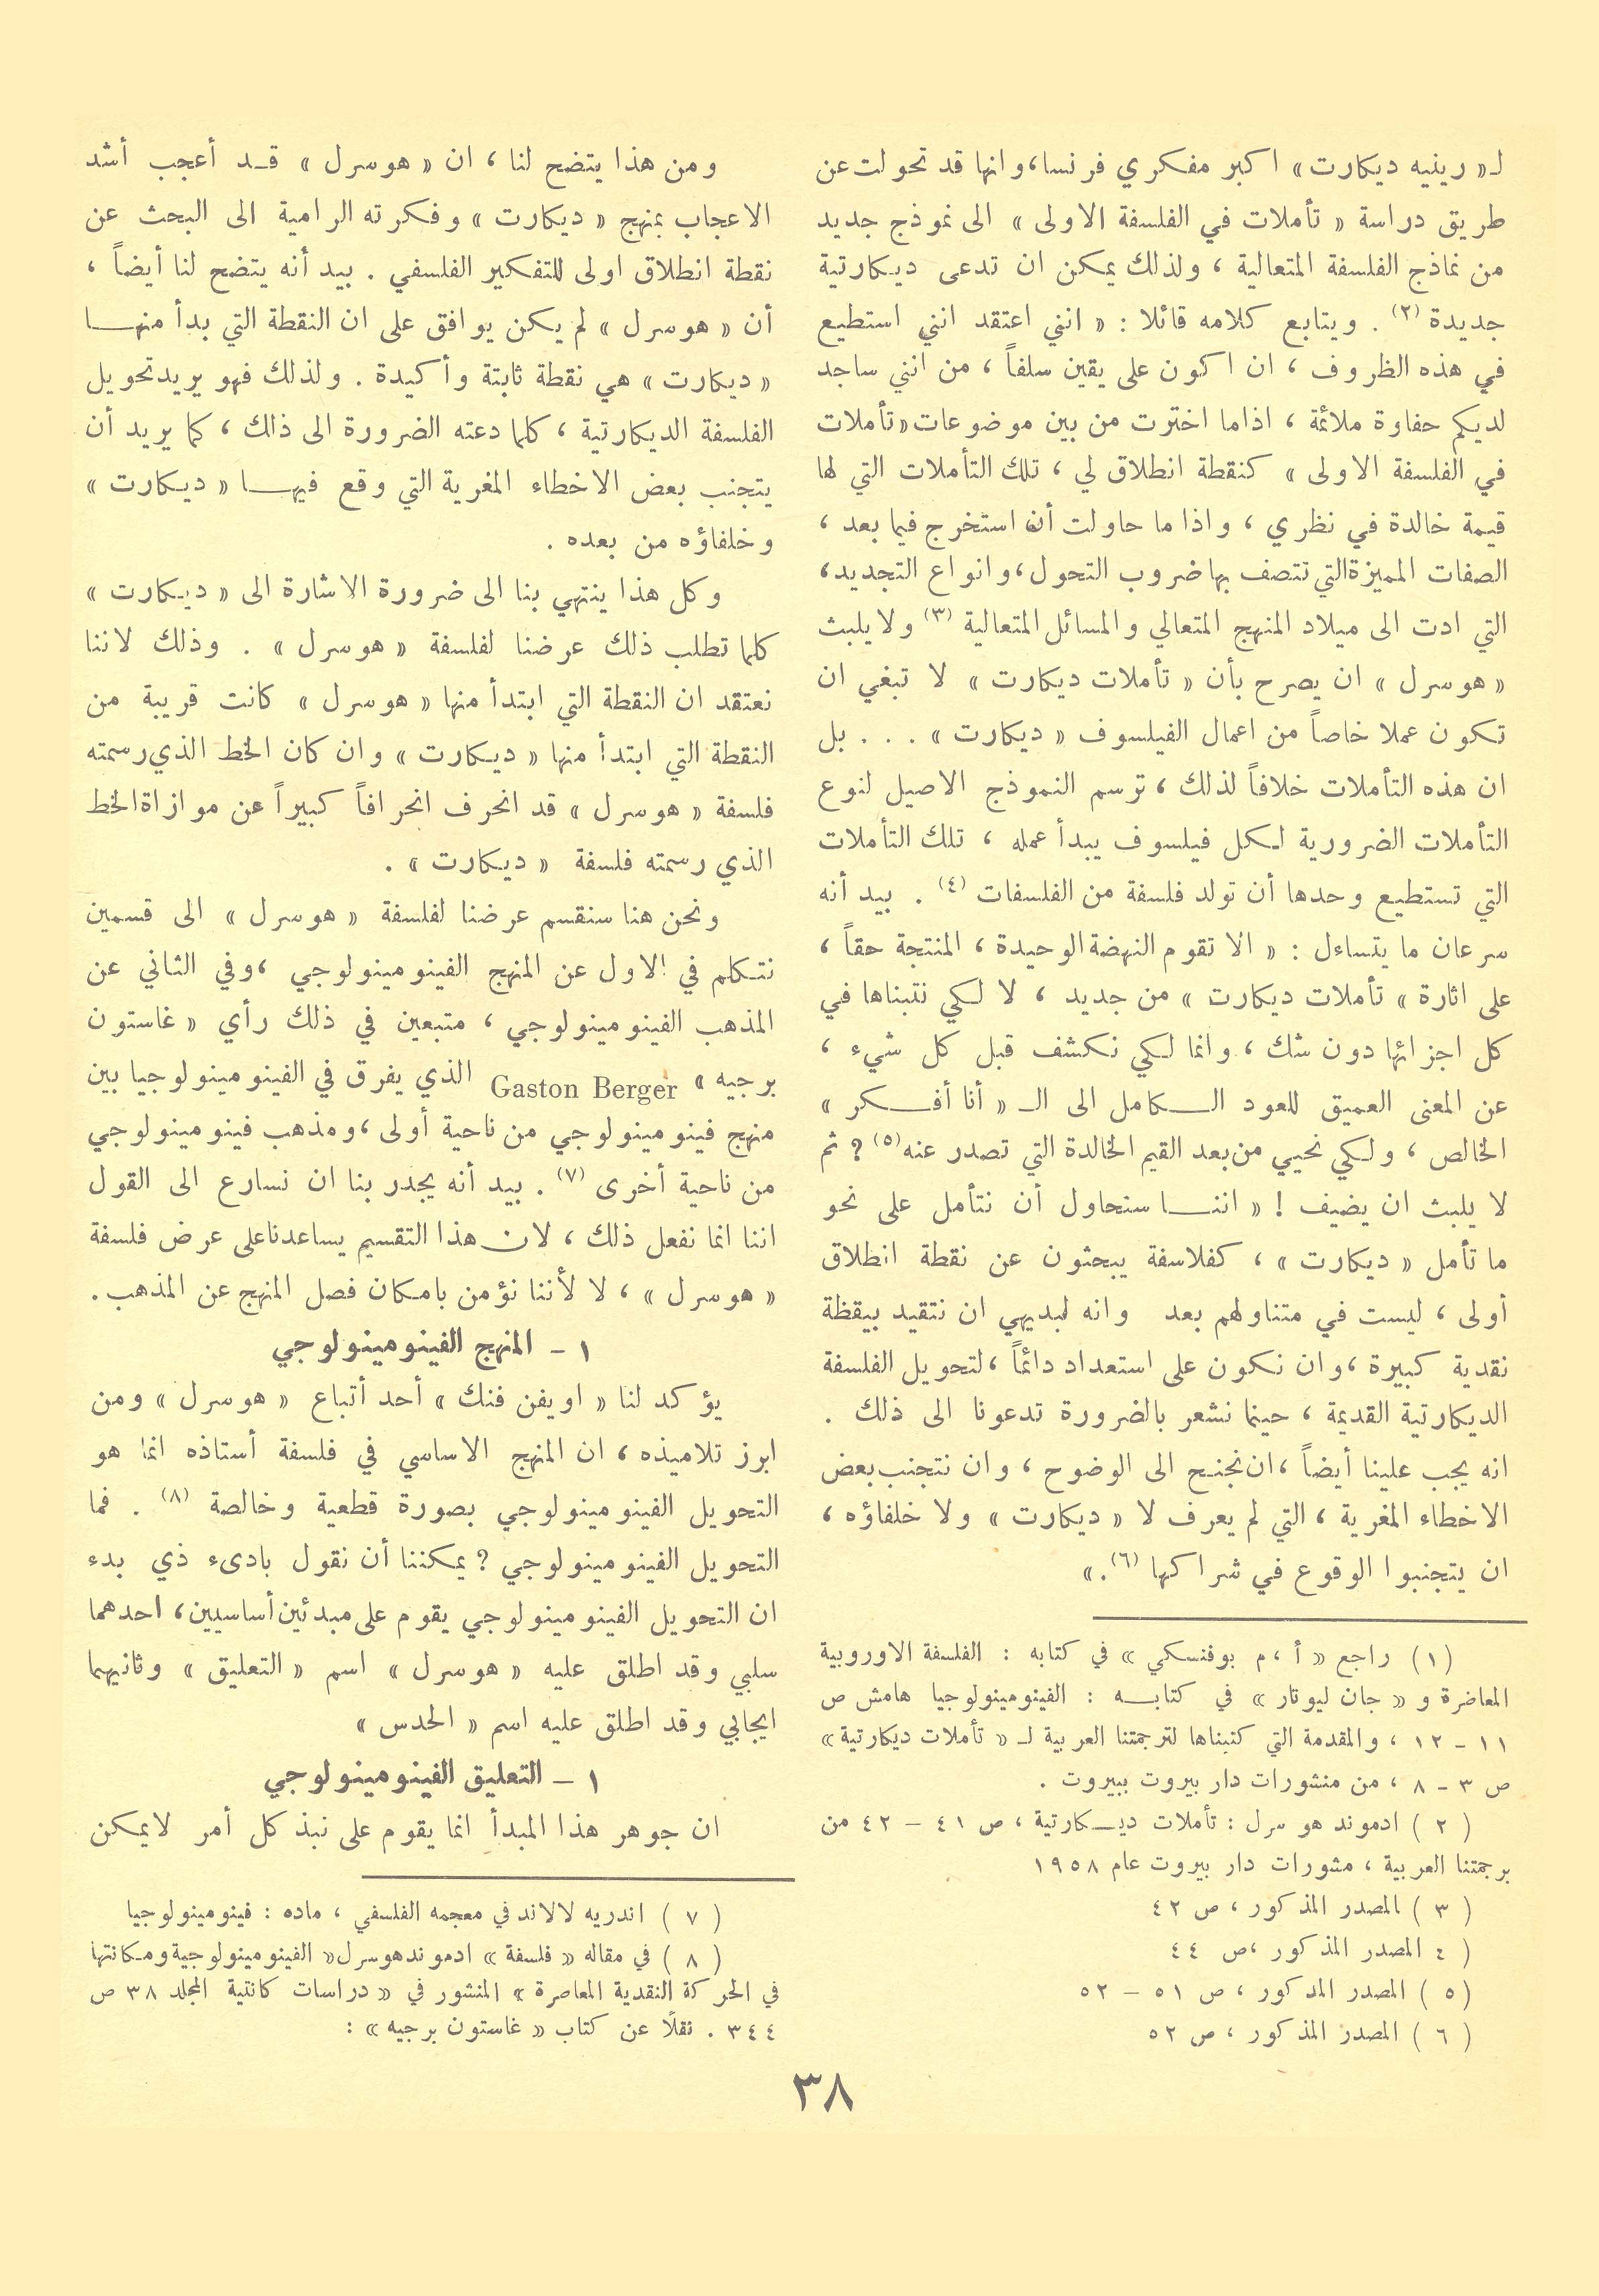 لـ« رينيه ديكارت» اكبر مفكري فرنسا، وانها قد تحولت عن
طريق دراسة « تأملات في الفلسفة الاولى » الى نموذج جديد
من نماذج الفلسفة المتعالية ، ولذلك يمكن ان تدعى ديكارتية
جديدة (٢) . ويتابع كلامه قائلا : « انني اعتقد انني استطيع
في هذه الظروف ، ان اكون على يقين سلفاً ، من انني ساجد
لديكم حفاوة ملائمة ، اذاما اخترت من بين موضوعات «تأملات
في الفلسفة الاولى » كنقطة انطلاق لي ، تلك التأملات التي لها
قيمة خالدة في نظري ، واذا ما حاولت أن استخرج فيما بعد ،
الصفات المميزة التي تتصف بها ضروب التحول ، وانواع التجديد،
التي ادت الى ميلاد المنهج المتعالي والمسائل المتعالية (٣) ولا يلبث
« هوسرل » ان يصرح بأن « تأملات ديكارت » لا تبغي ان
تكون عملا خاصاً من اعمال الفيلسوف « ديكارت » . . . بل
ان هذه التأملات خلافاً لذلك ، ترسم النموذج الاصيل لنوع
التأملات الضرورية لكل فيلسوف يبدأ عمله ، تلك التأملات
التي تستطيع وحدها أن تولد فلسفة من الفلسفات (٤) . بيد أنه
سرعان ما يتساءل : « الا تقوم النهضة الوحيدة ، المنتجة حقاً ،
على اثارة » تأملات ديكارت » من جديد ، لا لكي نتبناها في
كل اجزائها دون شك ، وانما لكي نكشف قبل كل شيء ،
عن المعنى العميق للعود الــكامل الى الـ « أنا أفــكر »
الخالص ، ولكي نحيي من بعد القيم الخالدة التي تصدر عنه (٥) ? ثم
لا يلبث ان يضيف ! « اننــا سنحاول أن نتأمل على نحو
ما تأمل « ديكارت » ، كفلاسفة يبحثون عن نقطة انطلاق
أولى ، ليست في متناولهم بعد وانه لبديهي ان نتقيد بيقظة
نقدية كبيرة ، وان نكون على استعداد دائماً ، لتحويل الفلسفة
الديكارتية القديمة ، حينما نشعر بالضرورة تدعونا الى ذلك .
انه يجب علينا أيضاً ، ان نجنح الى الوضوح ، وان نتجنب بعض
الاخطاء المغرية ، التي لم يعرف لا « ديكارت » ولا خلفاؤه ،
ان يتجنبوا الوقوع في شراكها (٦). »
(١) راجع « أ ، م بوفنسكي » في كتابه : الفلسفة الاوروبية
المعاضرة و « جان ليوتار » في كتابــه : الفينومينولوجيا هامش ص
١١ - ١٢ ، والمقدمة التي كتبناها لترجمتنا العربية لـ « تأملات ديكارتية »
ص ٣ - ٨ ، من منشورات دار بيروت ببيروت .
( ٢ ) ادموند هوسرل : تأملات ديــكارتية ، ص ٤١ – ٤٢ من
برجمتنا العربية ، مثورات دار بيروت عام ١٩٥٨
( ٣ ) المصدر المذكور ، ص ٤٢
( ٤ المصدر المذكور ،ص ٤٤
( ٥ ) المصدر المدكور ، ص ٥١ – ٥٢
( ٦ ) المصدر المذكور ، ص ٥٢
ومن هذا يتضح لنا ، ان « هوسرل » قـد أعجب أشد
الاعجاب بمنهج « ديكارت » وفكرته الرامية الى البحث عن
نقطة انطلاق اولى للتفكير الفلسفي . بيد أنه يتضح لنا أيضاً ،
أن « هوسرل » لم يكن يوافق على ان النقطة التي بدأ منهــا
« ديكارت » هي نقطة ثابتة وأكيدة . ولذلك فهو يريد تحويل
الفلسفة الديكارتية ، كلما دعته الضرورة الى ذلك ، كما يريد أن
يتجنب بعض الاخطاء المغرية التي وقع فيهــا « ديكارت »
وخلفاؤه من بعده .
وكل هذا ينتهي بنا الى ضرورة الاشارة الى « ديكارت »
كلما تطلب ذلك عرضنا لفلسفة « هوسرل » . وذلك لاننا
نعتقد ان النقطة التي ابتدأ منها « هوسرل » كانت قريبة من
النقطة التي ابتدأ منها « ديكارت » وان كان الخط الذي رسمته
فلسفة « هوسرل » قد انحرف انحرافاً كبيراً عن موازاة الخط
الذي رسمته فلسفة « ديكارت » .
ونحن هنا سنقسم عرضنا لفلسفة « هوسرل » الى قسمين
نتكلم في الاول عن المنهج الفينومينولوجي ، وفي الثاني عن
المذهب الفينومينولوجي ، متبعين في ذلك رأي « غاستون
برجيه » Gaston Berger الذي يفرق في الفينومينولوجيا بين
منهج فينومينولوجي من ناحية أولى ، ومذهب فينومينولوجي
من ناحية أخرى (٧) . بيد أنه يجدر بنا ان نسارع الى القول
اننا انما نفعل ذلك ، لان هذا التقسيم يساعدنا على عرض فلسفة
« هوسرل » ، لا لأننا نؤمن بامكان فصل المنهج عن المذهب .
١ - المنهج الفينومينولوجي
يؤكد لنا « اويفن فنك » أحد أتباع « هوسرل » ومن
ابرز تلاميذه ، ان المنهج الاساسي في فلسفة أستاذه انما هو
التحويل الفينومينولوجي بصورة قطعية وخالصة (٨) . فما
التحويل الفينومينولوجي ? يمكننا أن نقول بادىء ذي بدء
ان التحويل الفينومينولوجي يقوم على مبدئين أساسيين ، احدهما
سلبي وقد اطلق عليه « هوسرل » اسم « التعليق » وثانيهما
ايجابي وقد اطلق عليه اسم « الحدس »
١ – التعليق الفينومينولوجي
ان جوهر هذا المبدأ انما يقوم على نبذ كل أمر لايمكن
( ٧ ) اندريه لالاند في معجمه الفلسفي ، ماده : فينومينولوجيا
( ٨ ) في مقاله « فلسفة » ادموند هوسرل « الفينومينولوجية ومكانتها
في الحركة النقدية المعاصرة » المنشور في « دراسات كانتية المجلد ٣٨ ص
٣٤٤ . نقلًا عن كتاب « غاستون برجيه » :
٣٨